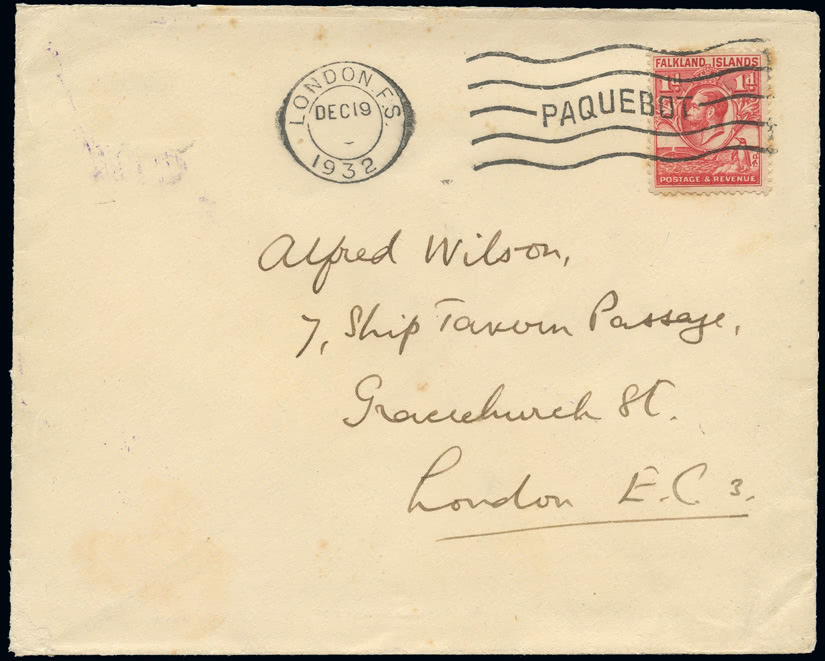 LONDON. F.S.
DEC 19
1932
PAQUEBOT
FALKLAND ISLANDS
1d 1d
POSTAGE & REVENUE
Alfred Wilson,
7, Ship Tavern Passage,
Gracechurch St.
London E.C. 3.